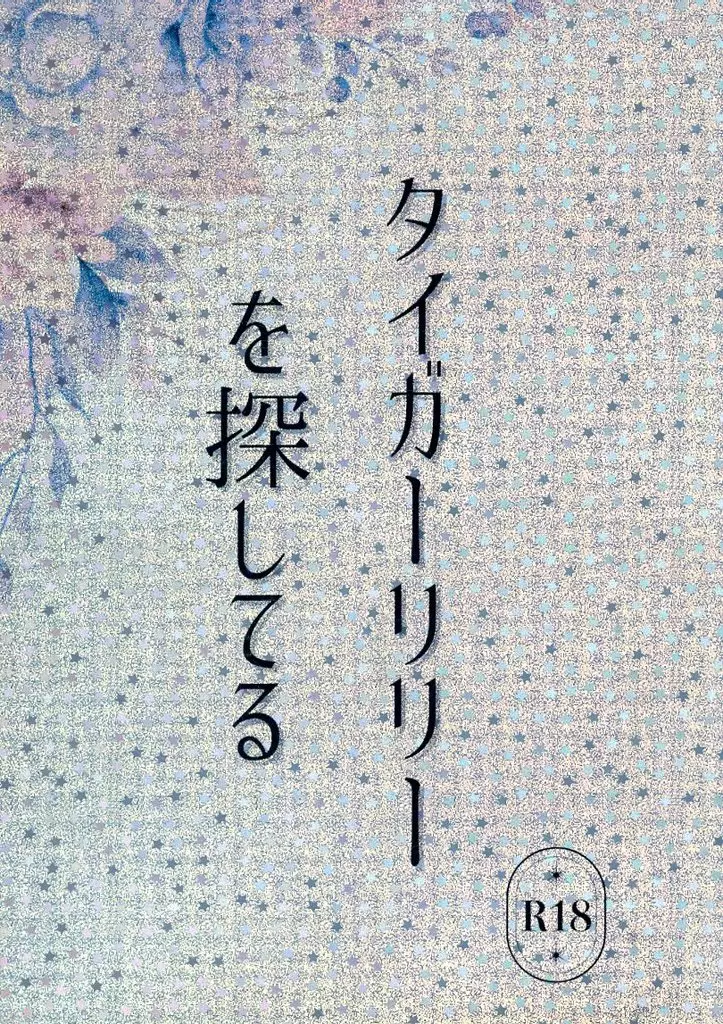 タイガーリリー
を探してる
R18